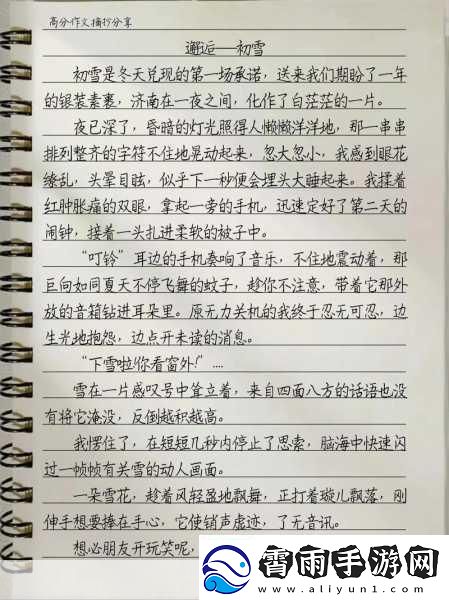 高分作文摘抄分享
邂逅——初雪
初雪是冬天兑现的第一场承诺，送来我们期盼了一年
的银装素裹，济南在一夜之间，化作了白茫茫的一片。
夜已深了，昏暗的灯光照得人懒懒洋洋地，那一串串
排列整齐的字符不住地晃动起来，忽大忽小，我感到眼花
缭乱，头晕目眩，似乎下一秒便会埋头大睡起来。我揉着
红肿胀痛的双眼，拿起一旁的手机，迅速定好了第二天的
闹钟，接着一头扎进柔软的被子中。
“叮铃”耳边的手机奏响了音乐，不住地震动着，那
巨向如同夏天不停飞舞的蚊子，趁你不注意，带着它那外
放的音箱钻进耳朵里。原无力关机的我终于忍无可忍，边
生光地抱怨，边点开未读的消息。
“下雪啦!你看窗外!”....
雪在一片感叹号中耸立着，来自四面八方的话语也没
有将它淹没，反倒越积越高。
我愣住了，在短短几秒内停止了思索，脑海中快速闪
过一帧帧有关雪的动人画面。
一朵雪花，趁着风轻盈地飘舞，正打着璇儿飘落，刚
伸手想要捧在手心，它便销声虚迹，了无音讯。
想必朋友开玩笑呢，
霄雨手游网
www.aliyun1.com